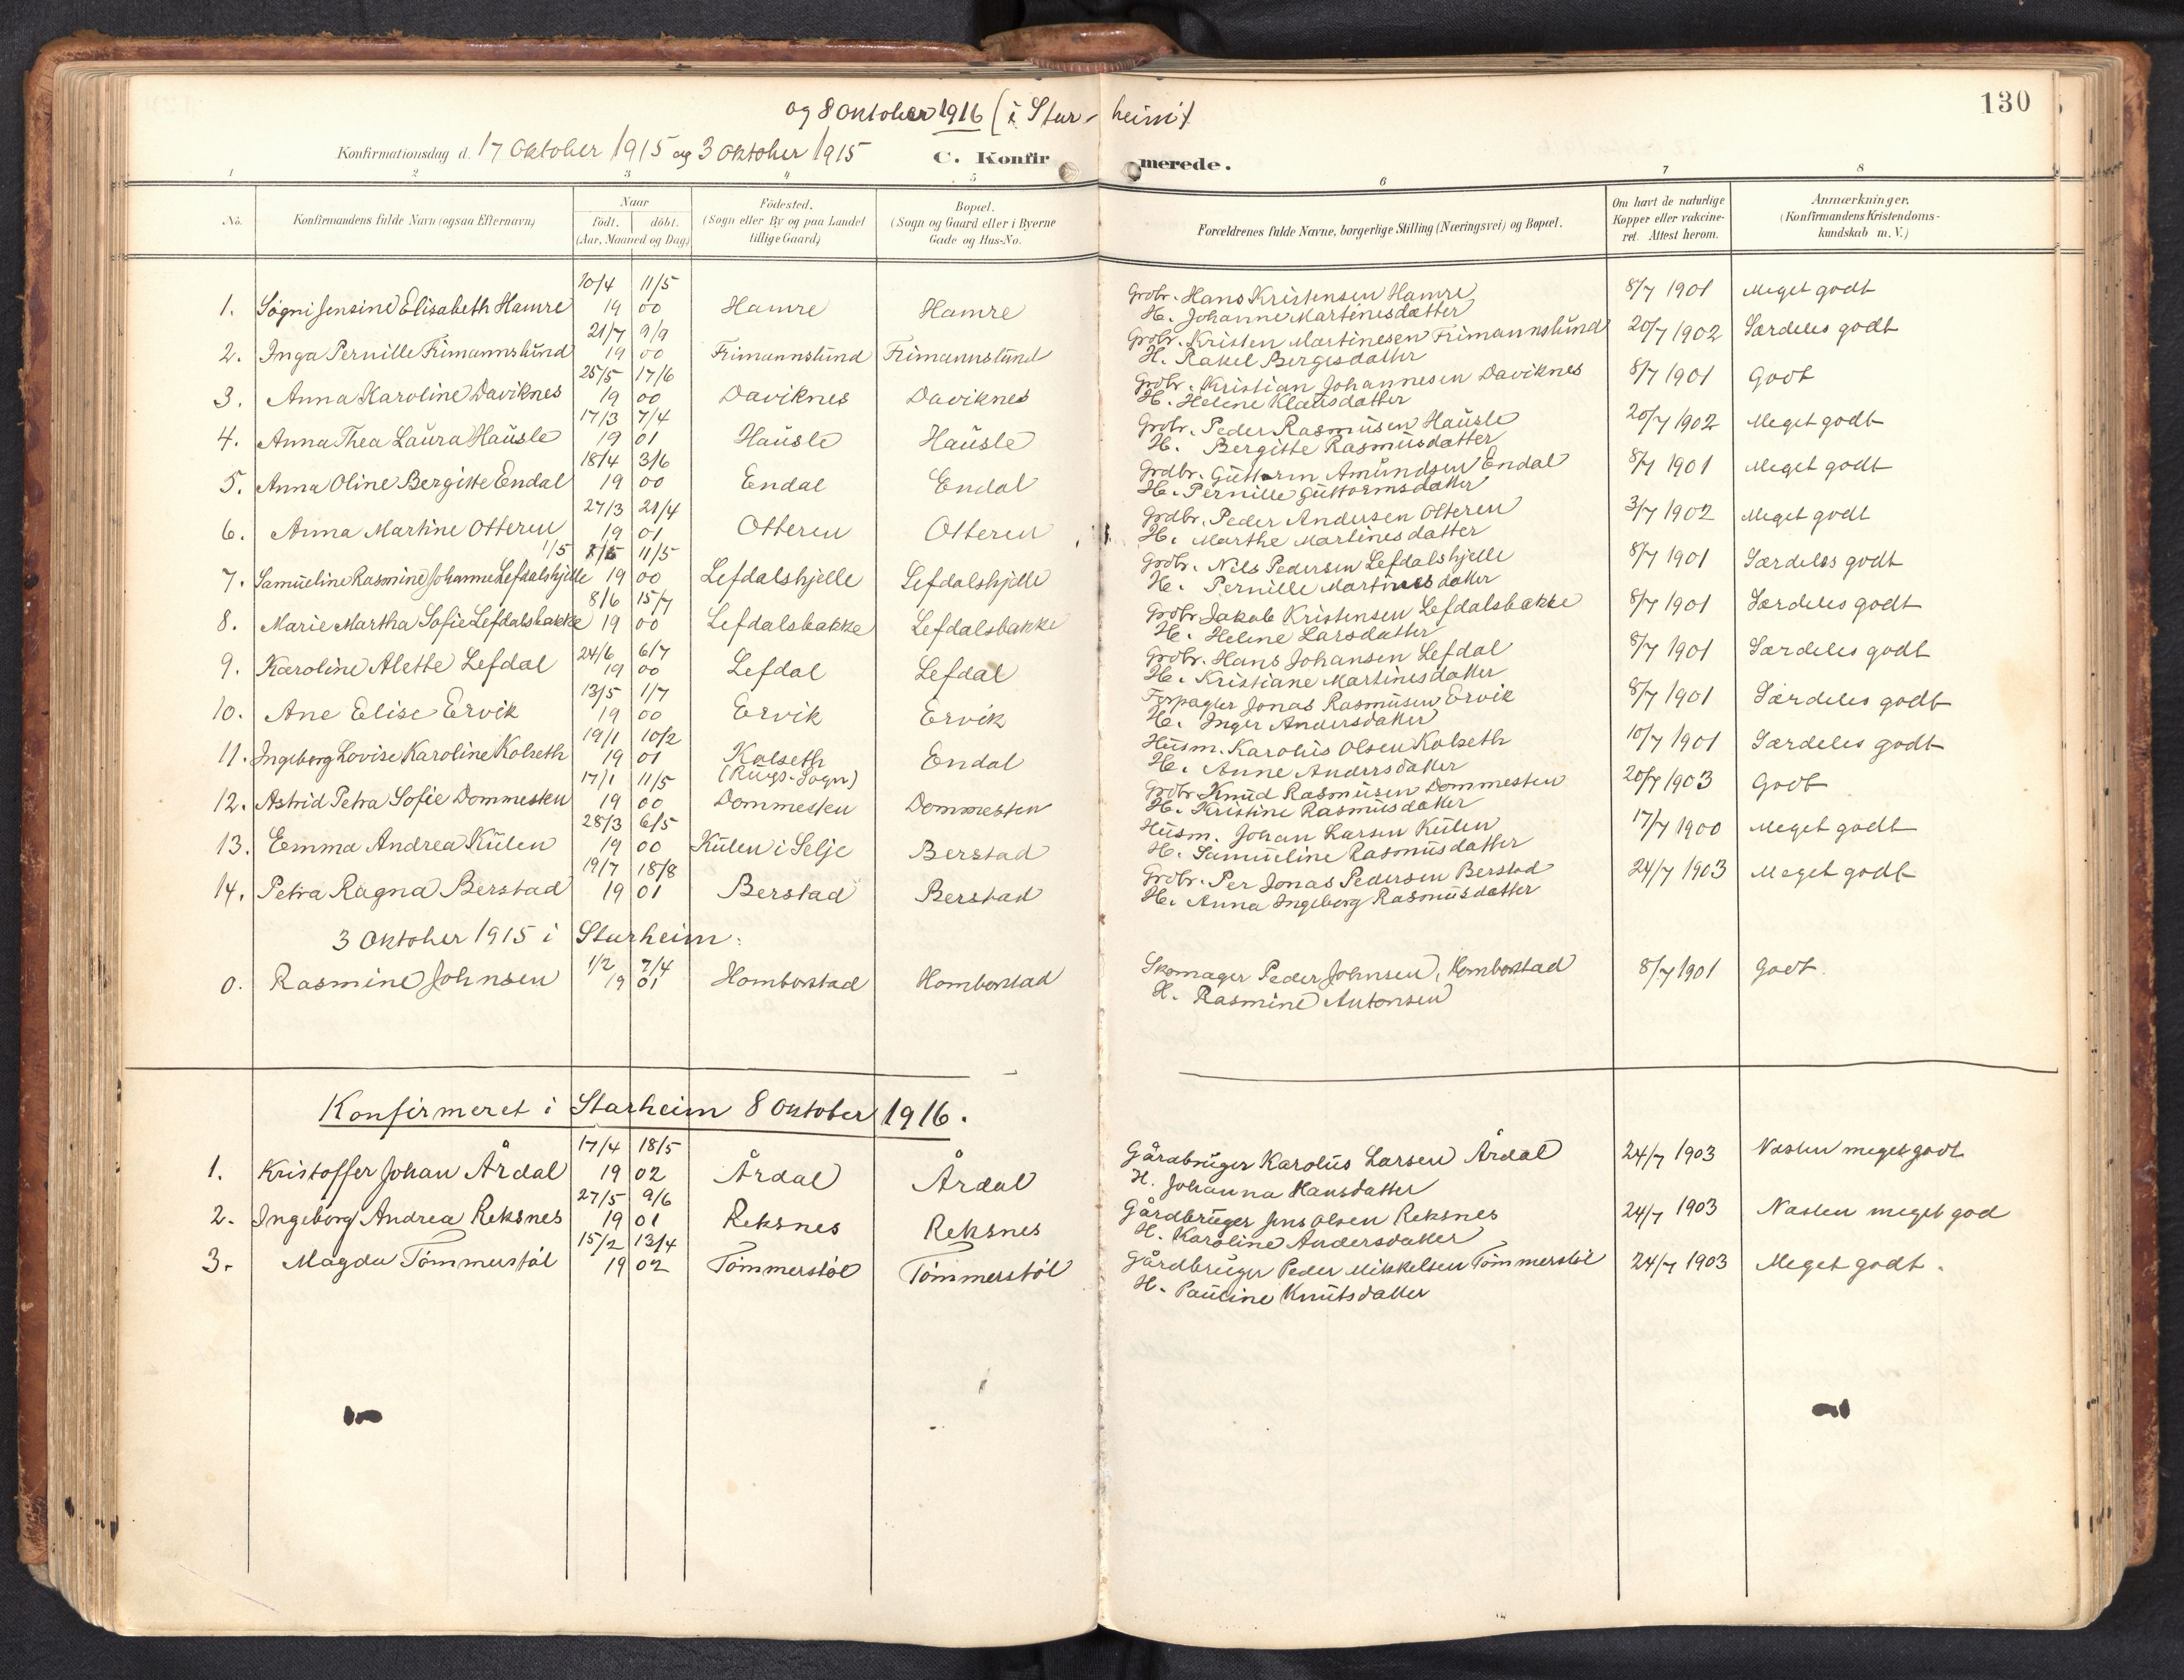 130
og 8 Oktober 1916 (i Star-heim)
Konfirmationsdag d. 17 Oktober 1915 og 3 Oktober 1915 C. Konfirmerede.
1 2 3 4 5 6 7 8
No. Konfirmandens fulde Navn (ogsaa Efternavn) Naar født. døbt. (Aar, Maaned og Dag) Fødested. (Sogn eller By og paa Landet tillige Gaard) Bopæl. (Sogn og Gaard eller i Byerne Gade og Hus-No. Forældrenes fulde Navne, borgerlige Stilling (Næringsvei) og Bopæl. Om havt de naturlige Kopper eller vakcineret. Attest herom. Anmærkninger. (Konfirmandens Kristendomskundskab m. V.)
10/4 11/5
1. Søgni Jensine Elisabeth Hamre 19 00 Hamre Hamre Grdbr. Hans Kristensen Hamre 8/7 1901 Meget godt
H. Johanne Martinesdatter
21/7 9/9
2. Inga Pernille Frimannslund 19 00 Frimannslund Frimannslund Grdbr. Kristen Martinesen Frimannslund 20/7 1902 Særdeles godt
H. Rakel Børgesdatter
25/5 17/6
3. Anna Karoline Daviknes 19 00 Daviknes Daviknes Grdbr. Kristian Johannesen Daviknes 8/7 1901 Godt
H. Helene Klausdatter
17/3 7/4
4. Anna Thea Laura Hausle 19 01 Hausle Hausle Grdbr. Peder Rasmusen Hausle 20/7 1902 Meget godt
H. Bergitte Rasmusdatter
18/4 3/6
5. Anna Oline Bergitte Endal 19 00 Endal Endal Grdbr. Guttorm Amundsen Endal 8/7 1901 Meget godt
H. Pernille Guttormsdatter
27/3 21/4
6. Anna Martine Otteren 19 01 Otteren Otteren Grdbr. Peder Andersen Otteren 3/7 1902 Meget godt
H. Marthe Martinesdatter
1/5 11/5
7. Samueline Rasmine Johanne Lefdalshjelle 19 00 Lefdalshjelle Lefdalshjelle Grdbr. Nils Pedersen Lefdalshjelle 8/7 1901 Særdeles godt
H. Pernille Martinesdatter
8/6 15/7
8. Marie Martha Sofie Lefdalsbakke 19 00 Lefdalsbakke Lefdalsbakke Grdbr Jakob Kristensen Lefdalsbakke 8/7 1901 Særdeles godt
H. Helene Larsdatter
24/6 6/7
9. Karoline Alette Lefdal 19 00 Lefdal Lefdal Grdbr. Hans Johansen Lefdal 8/7 1901 Særdeles godt
H. Kristiane Martinesdatter
13/5 1/7
10. Ane Elise Ervik 19 00 Ervik Ervik Forpagter Jonas Rasmusen Ervik 8/7 1901 Særdeles godt
H. Inger Andersdatter
19/1 10/2
11. Ingeborg Lovise Karoline Kolseth 19 01 Kolseth (Rugs-Sogn) Endal Husm. Karolus Olsen Kolseth 10/7 1901 Særdeles godt
H. Anne Andersdatter
17/1 11/5
12. Astrid Petra Sofie Dommesten 19 00 Dommesten Dommesten Grdbr Knud Rasmusen Dommesten 20/7 1903 Godt
H. Kristine Rasmusdatter
28/3 6/5
13. Emma Andrea Kulen 19 00 Kulen i Selje Berstad Husm. Johan Larsen Kulen 17/7 1900 Meget godt
H. Samueline Rasmusdatter
19/7 18/8
14. Petra Ragna Berstad 19 01 Berstad Berstad Grdbr. Per Jonas Pedersen Berstad 24/7 1903 Meget godt
H. Anna Ingeborg Rasmusdatter
3 Oktober 1915 i Starheim:
1/2 7/4
0. Rasmine Johnsen 19 01 Homborstad Homborstad Skomager Peder Johnsen, Homborstad 8/7 1901 Godt.
H. Rasmine Antonsen
Konfirmeret i Starheim 8 Oktober 1916.
17/4 18/5
1. Kristoffer Johan Årdal 19 02 Årdal Årdal Gårdbruger Karolus Larsen Årdal 24/7 1903 Næsten meget godt
H. Johanna Hansdatter
27/5 9/6
2. Ingeborg Andrea Reksnes 19 01 Reksnes Reksnes Gårdbruger Jens Olsen Reksnes 24/7 1903 Næsten meget god
H. Karoline Andersdatter
15/2 13/4
3. Magda Tømmerstøl 19 02 Tømmerstøl Tømmerstøl Gårdbruger Peder Mikkelsen Tømmerstøl 24/7 1903 Meget godt.
H. Pauline Knutsdatter